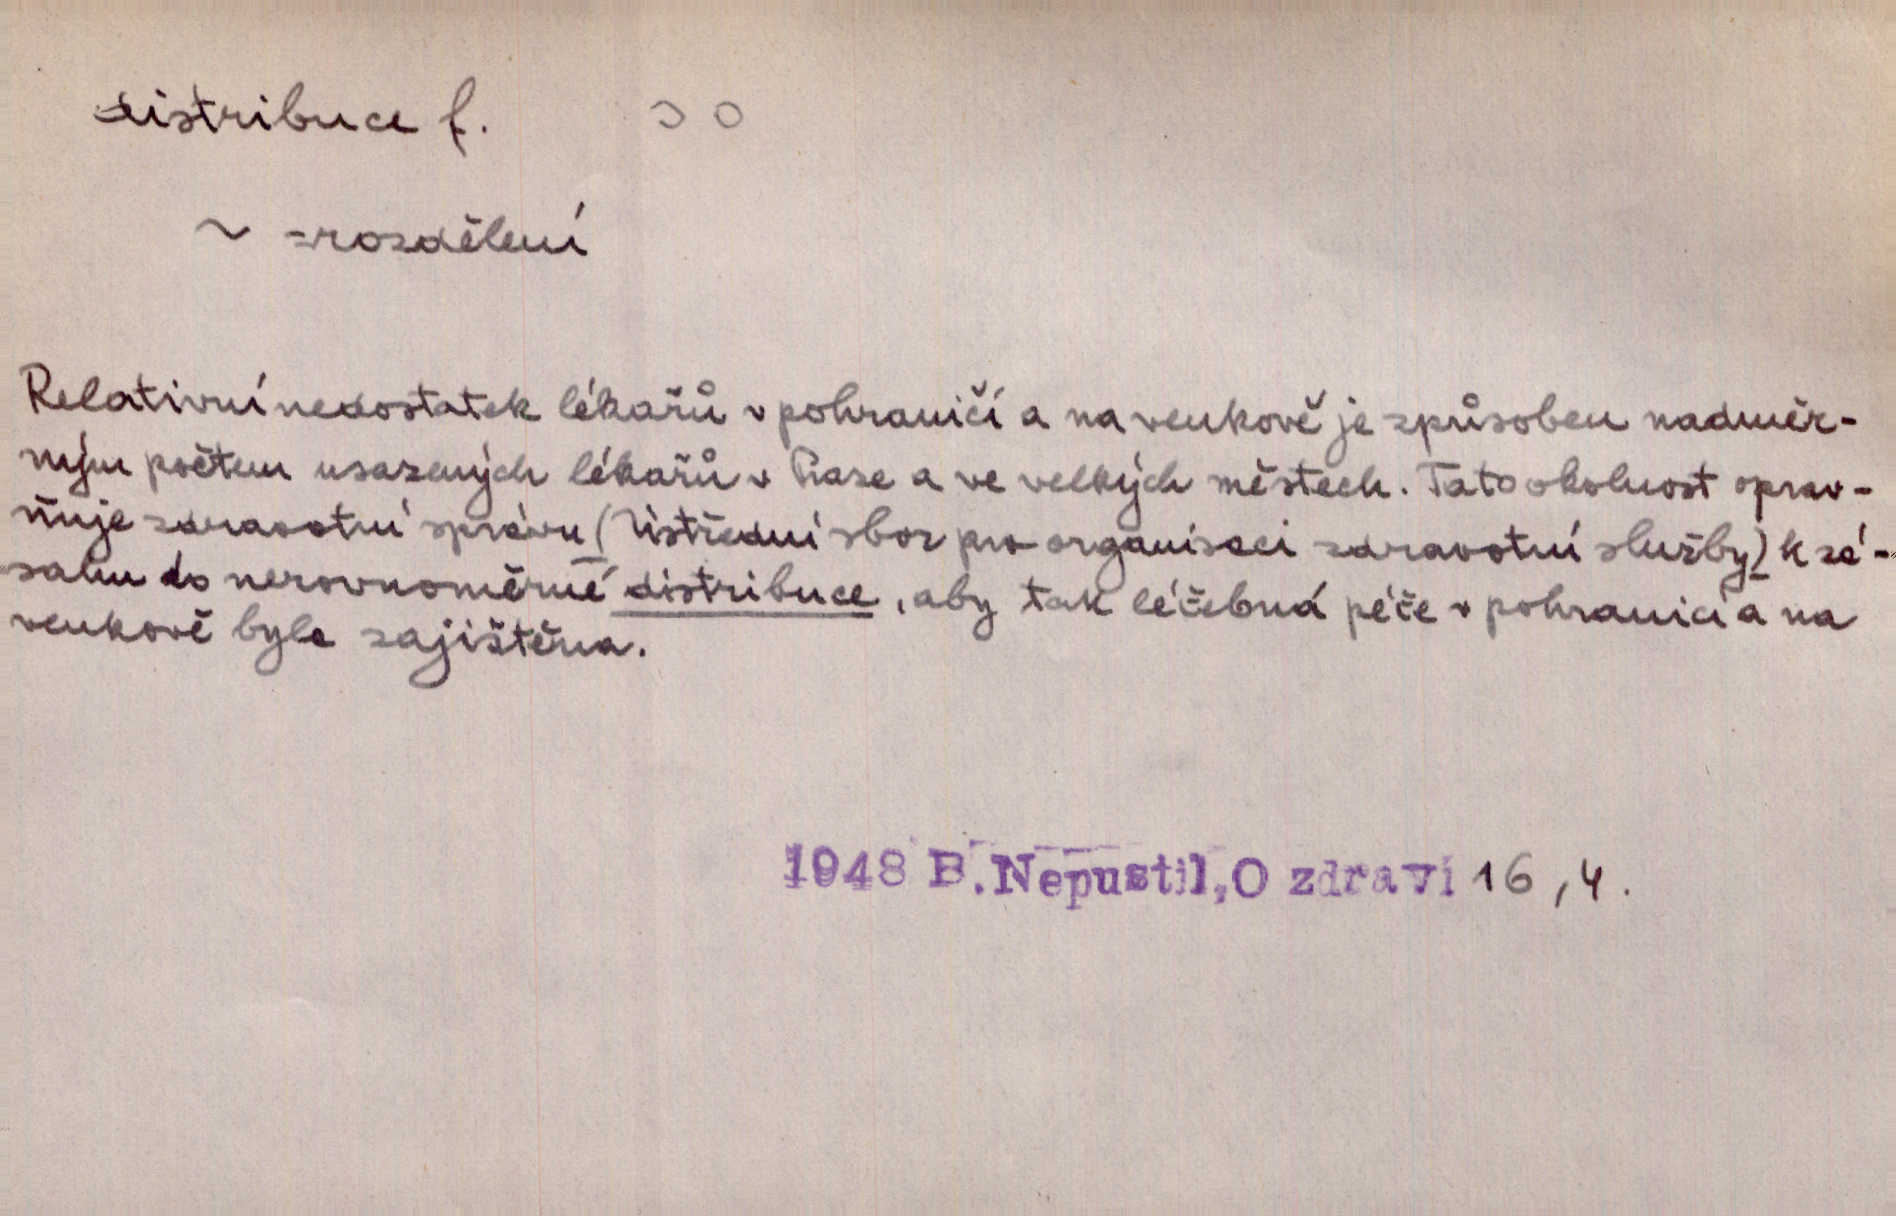 distribuce f.
~ =rozdělení
Relativní nedostatek lékařů v pohraničí a na venkově je způsoben nadměr-
ným počtem usazených lékařů v Praze a ve velkých městech. Tato okolnost oprav-
ňuje zdravotní správu (Ústřední sbor pro organisaci zdravotní služby) k zá-
sahu do nerovnoměrné distribuce, aby tak léčebná péče v pohranicí a na
venkově byla zajištěna.
1948 B.Nepustil,O zdraví 16,4.